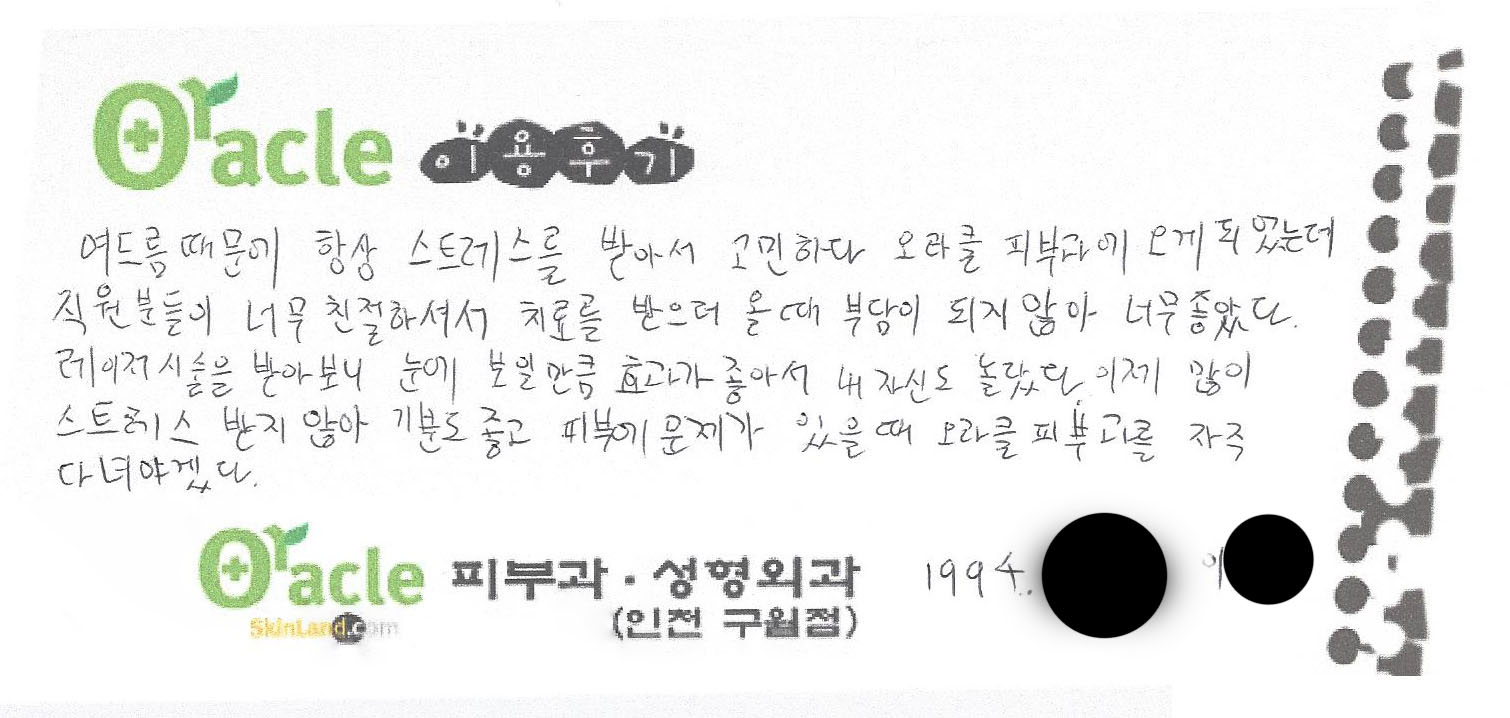 Oracle 이용후기
여드름 때문에 항상 스트레스를 받아서 고민하다 오라클 피부과에 오게 되었는데
직원분들이 너무 친절하셔서 치료를 받으러 올때 부담이 되지 않아 너무좋았다.
레이저시술을 받아보니 눈에 보일만큼 효과가 좋아서 내 자신도 놀랐다. 이제 많이
스트레스 받지 않아 기분도 좋고 피부에 문제가 있을 때 오라클피부과를 자주
다녀야겠다.
Oracle 피부과·성형외과 1994.
SkinLand.com (인천 구월점)